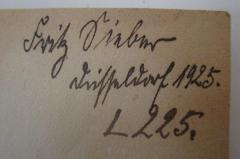 Fritz Sieber
Düsseldorf 1925.
L 225.